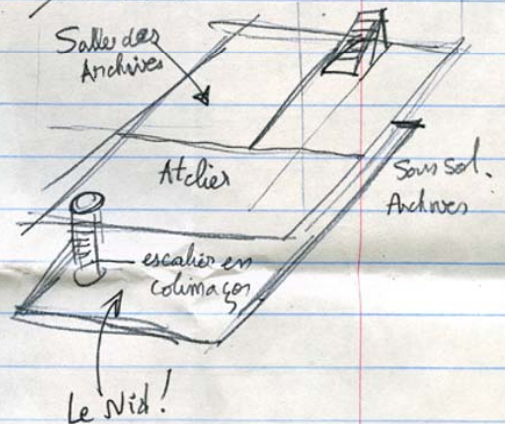 Salle des
Archives
Atelier
Sous Sol.
Archives
escalier en
colimaçon
Le Nid !